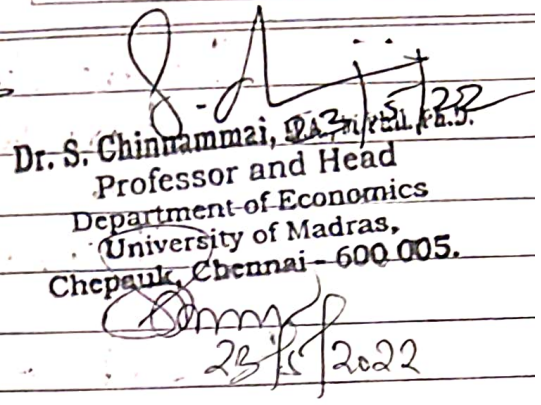 Dr. S. Chinnammai,
Professor and Head
Department of Economics
University of Madras,
Chepauk, Chennai - 600 005.
23/5/2022